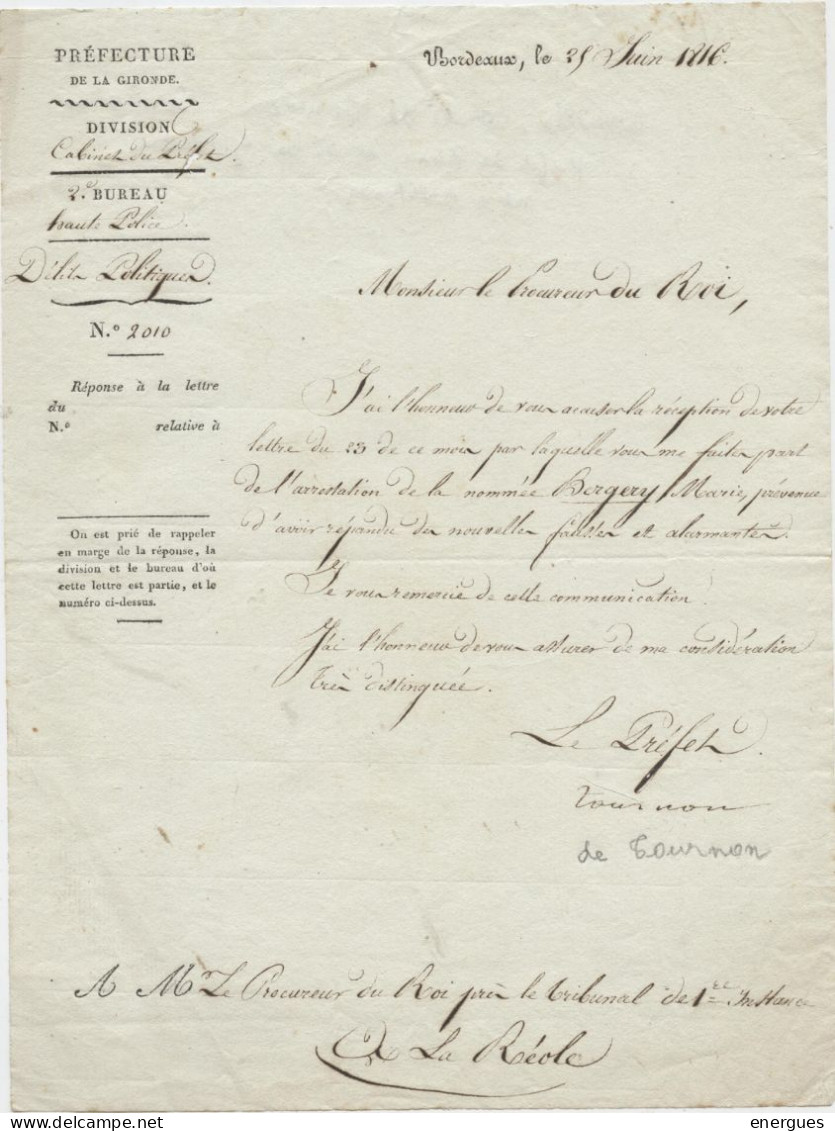 PRÉFECTURE
DE LA GIRONDE.
DIVISION
Cabinet du Préfet.
2.e BUREAU
haute Police.
Délits Politiques.
N.o 2010
Réponse à la lettre
du
N.o relative à
On est prié de rappeler
en marge de la réponse, la
division et le bureau d'où
cette lettre est partie, et le
numéro ci-dessus.
Bordeaux, le 25 Juin 1816.
Monsieur le Procureur du Roi,
J'ai l'honneur de vous accuser la réception de votre
lettre du 23 de ce mois par laquelle vous me faites part
de l'arrestation de la nommée Bergery Marie, prévenue
d'avoir répandu des nouvelles fausses et alarmantes.
Je vous remercie de cette communication.
J'ai l'honneur de vous assurer de ma considération
très distinguée.
Le Préfet.
Tournon
de Tournon
A Mr. Le Procureur du Roi près le tribunal de 1ère Instance
A La Réole
energues